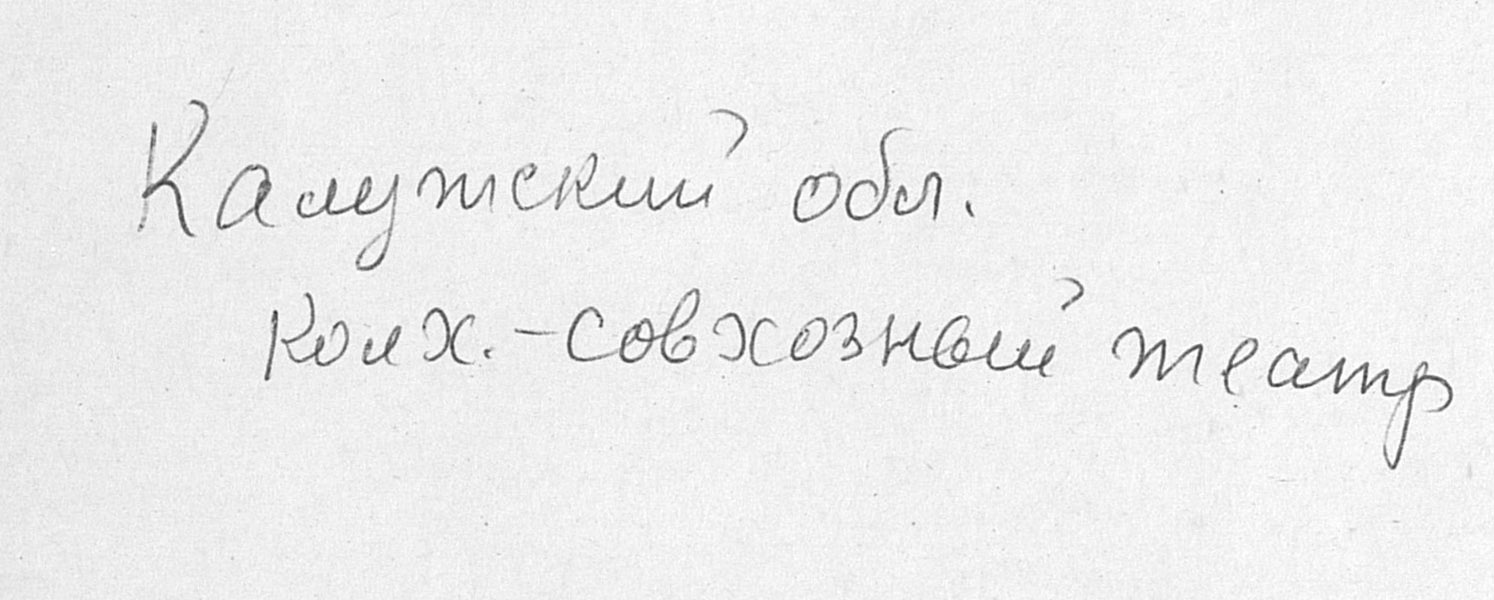 Калужский обл.
колх.-совхозный театр